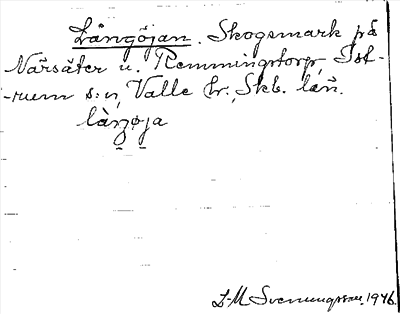 Långöjan. Skogsmark på
Närsäter u. Remmingstorp, Ist-
-rum s:n, Valle hr., Skb. län.
låŋøja
L-M Svenungsson. 1946.